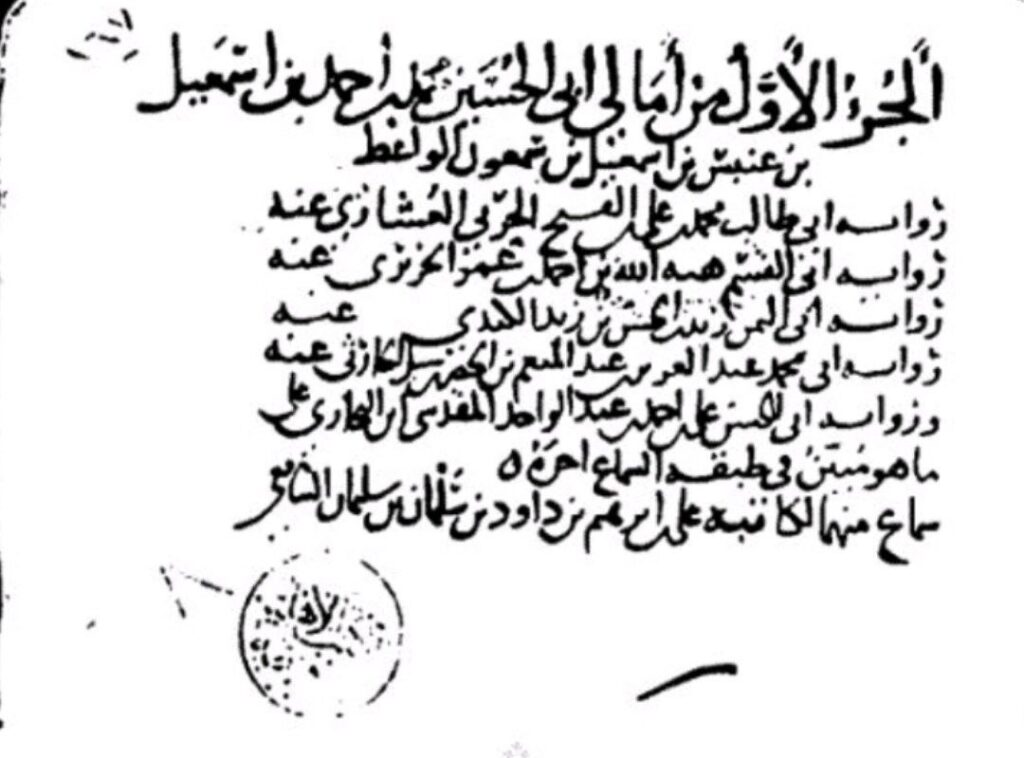 الجُزءُ الأوَّلُ من أمالي ابي الحُسَين محمد بن احمد بن اسمعيل
بن عنبس بن اسمعيل بن سمعون الواعظ
رواية ابي طالب محمد بن علي بن الفتح الحربي العُشاري عنه
رواية ابي القسم هبة الله بن احمد بن عمر الحريري عنه
رواية ابي اليمن زيد بن الحسن بن زيد الكندي عنه
رواية ابي محمد عبد العزيز بن عبد المنعم بن الخضر بن شبل الحارثي عنه
ورواية ابي الحسن علي بن احمد بن عبد الواحد المقدسي ابن البخاري على
ما هو مُبيّن في طبقة السماع اخره ه
سماع منهما لكاتبه علي بن ابرهيم بن داود بن سلمان بن سلمان الشافعي